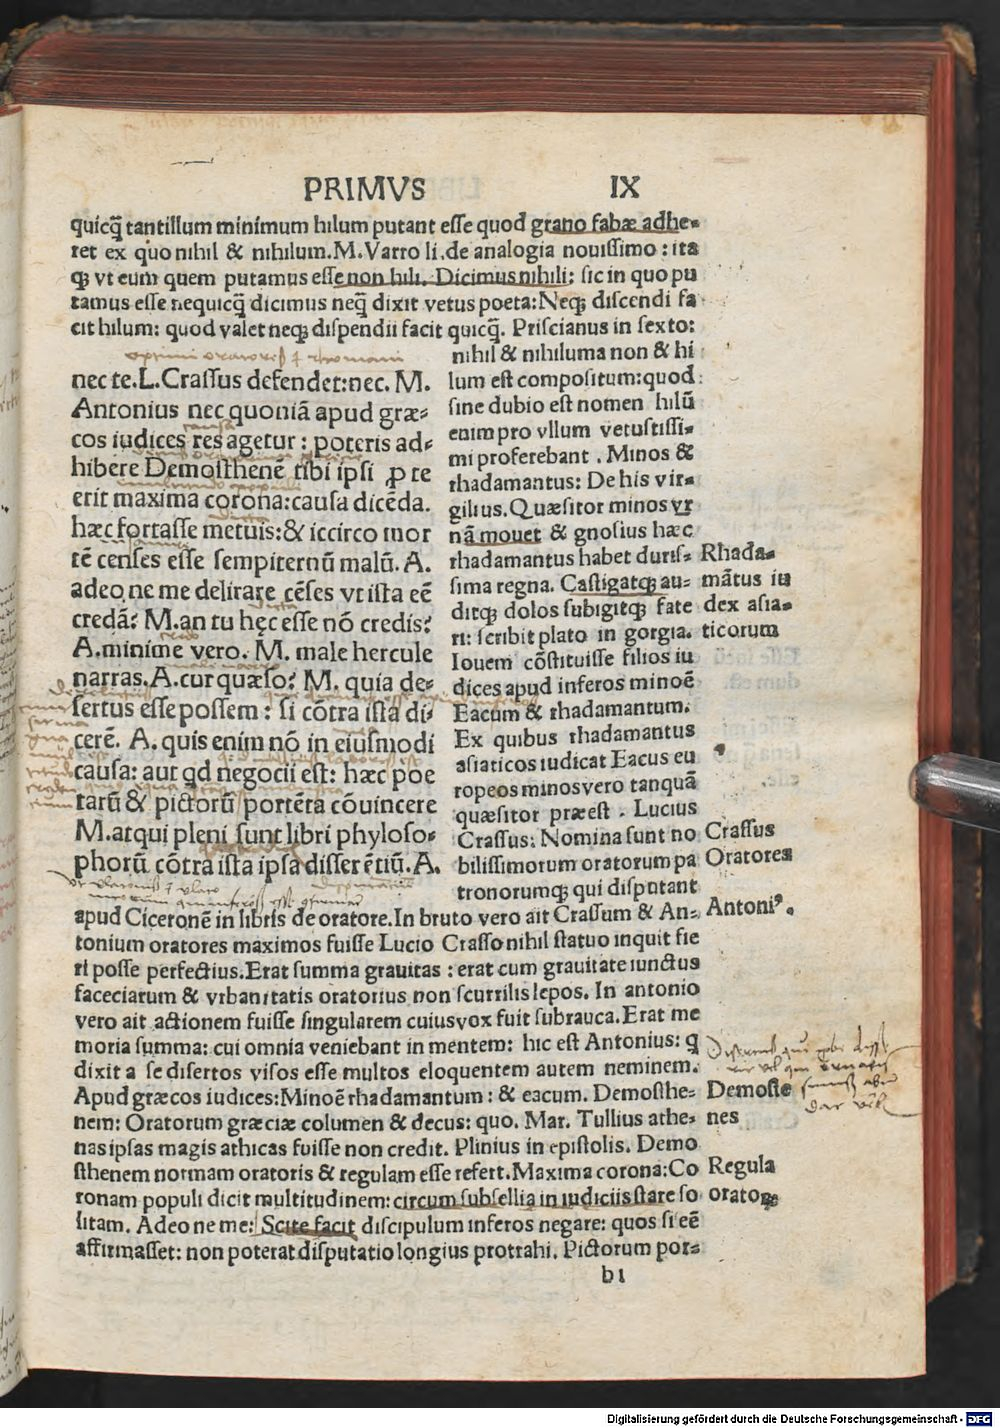 PRIMVS IX
quicq̄ tantillum minimum hilum putant esse quod grano fabæ adhe⸗
ret ex quo nihil & nihilum. M. Varro li. de analogia nouissimo : ita
qꝫ vt eum quem putamus esse non hili. Dicimus nihili: sic in quo pu
tamus esse nequicq̄ dicimus neq̄ dixit vetus poeta: Neqꝫ discendi fa
cit hilum: quod valet neqꝫ dispendii facit quicq̄. Priscianus in sexto:
nec te. L. Crassus defendet: nec. M.
Antonius nec quoniā apud græ⸗
cos iudices res agetur : poteris ad⸗
hibere Demosthenē tibi ipsi ꝓ te
erit maxima corona: causa dicēda.
hæc fortasse metuis: & iccirco mor
tē censes esse sempiternū malū. A.
adeo ne me delirare cēses vt ista eē
credā? M. an tu hęc esse nō credis?
A. minime vero. M. male hercule
narras. A. cur quæso? M. quia de⸗
sertus esse possem : si cōtra ista di⸗
cerē. A. quis enim nō in eiusmodi
causa: aut qd negocii est: hæc poe
tarū & pictorū portēta cōuincere
M. atqui pleni sunt libri phyloso⸗
phorū cōtra ista ipsa disserētiū. A.
nihil & nihiluma non & hi
lum est compositum: quod
sine dubio est nomen hilū
enim pro vllum vetustissi⸗
mi proferebant . Minos &
rhadamantus: De his vir⸗
gilius. Quæsitor minos vr
nā mouet & gnosius hæc
rhadamantus habet duris⸗
sima regna. Castigatqꝫ au⸗
ditqꝫ dolos subigitqꝫ fate
ri: scribit plato in gorgia.
Iouem cōstituisse filios iu
dices apud inferos minoē
Eacum & rhadamantum.
Ex quibus rhadamantus
asiaticos iudicat Eacus eu
ropeos minos vero tanquā
quæsitor præest . Lucius
Crassus: Nomina sunt no
bilissimorum oratorum pa
tronorumqꝫ qui disputant
Rhada⸗
mātus iu
dex asia⸗
ticorum
Crassus
Oratores
Antoniꝰ.
apud Ciceronē in libris de oratore. In bruto vero ait Crassum & An⸗
tonium oratores maximos fuisse Lucio Crasso nihil statuo inquit fie
ri posse perfectius. Erat summa grauitas : erat cum grauitate iunctus
faceciarum & vrbanitatis oratorius non scurrilis lepos. In antonio
vero ait actionem fuisse singularem cuius vox fuit subrauca. Erat me
moria summa: cui omnia veniebant in mentem: hic est Antonius: q
dixit a se disertos visos esse multos eloquentem autem neminem.
Apud græcos iudices: Minoē rhadamantum : & eacum. Demosthe⸗
nem: Oratorum græciæ columen & decus: quo. Mar. Tullius athe⸗
nas ipsas magis athicas fuisse non credit. Plinius in epistolis. Demo
sthenem normam oratoris & regulam esse refert. Maxima corona: Co
ronam populi dicit multitudinem: circum subsellia in iudiciis stare so
litam. Adeo ne me: Scite facit discipulum inferos negare: quos si eē
affirmasset: non poterat disputatio longius protrahi. Pictorum por⸗
Demoste
nes
Regula
orator
b1
Digitalisierung gefördert durch die Deutsche Forschungsgemeinschaft - DFG